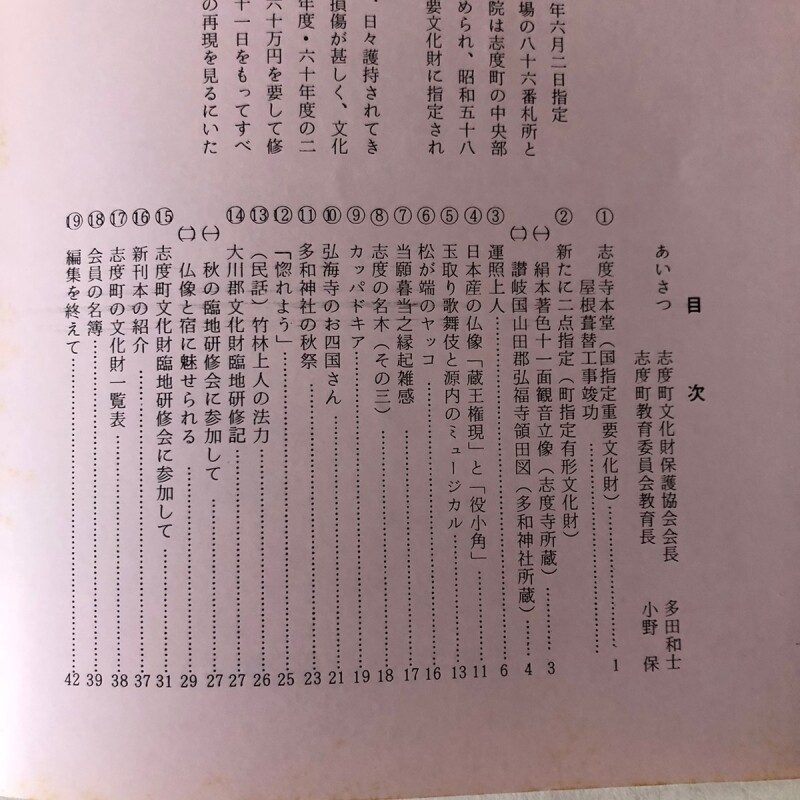 年六月二日指定
場の八十六番札所と
院は志度町の中央部
められ、昭和五十八
要文化財に指定され
、日々護持されてき
損傷が甚しく、文化
年度・六十年度の二
六十万円を要して修
十一日をもってすべ
の再現を見るにいた
目次
あいさつ 志度町文化財保護協会会長 多田和士
志度町教育委員会教育長 小野保
① 志度寺本堂(国指定重要文化財)
屋根葺替工事竣功 1
② 新たに二点指定(町指定有形文化財)
㈠ 絹本著色十一面観音立像(志度寺所蔵) 3
㈡ 讃岐国山田郡弘福寺領田図(多和神社所蔵) 4
③ 運照上人 6
④ 日本産の仏像「蔵王権現」と「役小角」 11
⑤ 玉取り歌舞伎と源内のミュージカル 13
⑥ 松が端のヤッコ 16
⑦ 当願暮当之縁起雑感 17
⑧ 志度の名木(その三) 18
⑨ カッパドキア 19
⑩ 弘海寺のお四国さん 21
⑪ 多和神社の秋祭 23
⑫ 「惚れよう」 25
⑬ (民話)竹林上人の法力 26
⑭ 大川郡文化財臨地研修記 27
㈠ 秋の臨地研修会に参加して 27
㈡ 仏像と宿に魅せられる 29
⑮ 志度町文化財臨地研修会に参加して 31
⑯ 新刊本の紹介 37
⑰ 志度町の文化財一覧表 38
⑱ 会員の名簿 39
⑲ 編集を終えて 42